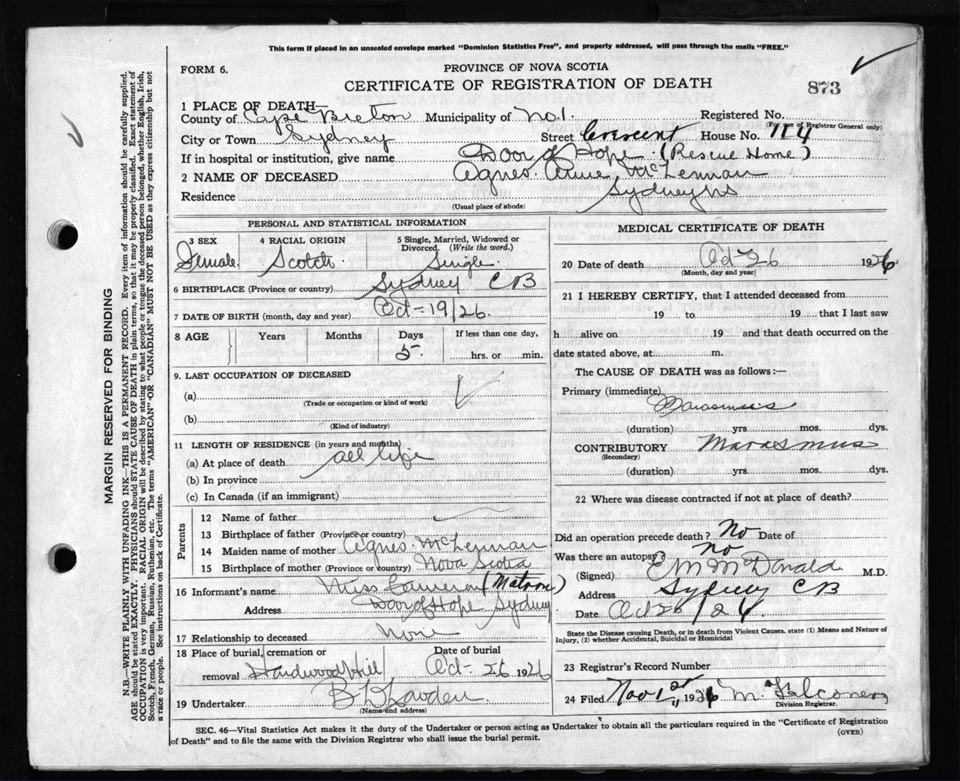 This form if placed in an unsealed envelope marked "Dominion Statistics Free", and properly addressed, will pass through the mails "FREE."
FORM 6.
PROVINCE OF NOVA SCOTIA
CERTIFICATE OF REGISTRATION OF DEATH
873
1 PLACE OF DEATH—
County of Cape Breton Municipality of No 1. Registered No.
(For use of Registrar General only)
City or Town Sydney Street Crescent House No. 114
If in hospital or institution, give name Door of Hope (Rescue Home)
2 NAME OF DECEASED Agnes Anne McLennan
Residence Sydney NS
(Usual place of abode)
PERSONAL AND STATISTICAL INFORMATION
3 SEX 4 RACIAL ORIGIN 5 Single, Married, Widowed or Divorced. (Write the word.)
Female Scotch Single
6 BIRTHPLACE (Province or country) Sydney CB
7 DATE OF BIRTH (month, day and year) Oct-19/26.
8 AGE Years Months Days If less than one day,
5 hrs. or min.
9. LAST OCCUPATION OF DECEASED
(a)
(Trade or occupation or kind of work)
(b)
(Kind of industry)
11 LENGTH OF RESIDENCE (in years and months)
(a) At place of death all life
(b) In province
(c) In Canada (if an immigrant)
Parents
12 Name of father
13 Birthplace of father (Province or country)
14 Maiden name of mother Agnes McLennan
15 Birthplace of mother (Province or country) Nova Scotia
16 Informant's name Miss Cameron (Matron)
Address Door of Hope Sydney
17 Relationship to deceased None
18 Place of burial, cremation or removal Hardwood Hill
Date of burial
Oct-26 1926
19 Undertaker
(Name and address)
MEDICAL CERTIFICATE OF DEATH
20 Date of death Oct 26 1926
(Month, day and year)
21 I HEREBY CERTIFY, that I attended deceased from
19 to 19 that I last saw
h alive on 19 and that death occurred on the
date stated above, at m.
The CAUSE OF DEATH was as follows:—
Primary (immediate) Marasmus
(duration) yrs mos. dys.
CONTRIBUTORY Marasmus
(Secondary)
(duration) yrs mos. dys.
22 Where was disease contracted if not at place of death?
Did an operation precede death? No Date of
Was there an autopsy? no
(Signed) E M McDonald M.D.
Address Sydney CB
Date Oct 26/26
State the Disease causing Death, or in death from Violent Causes, state (1) Means and Nature of Injury, (2) whether Accidental, Suicidal or Homicidal
23 Registrar's Record Number
24 Filed Nov 1st 1926
Division Registrar.
SEC. 46—Vital Statistics Act makes it the duty of the Undertaker or person acting as Undertaker to obtain all the particulars required in the "Certificate of Registration
of Death" and to file the same with the Division Registrar who shall issue the burial permit.
(OVER)
MARGIN RESERVED FOR BINDING
N.B.—WRITE PLAINLY WITH UNFADING INK—THIS IS A PERMANENT RECORD. Every item of information should be carefully supplied.
AGE should be stated EXACTLY. PHYSICIANS should STATE CAUSE OF DEATH in plain terms, so that it may be properly classified. Exact statement of
OCCUPATION is very important. RACIAL ORIGIN will be described by stating to what people or tongue the deceased person belonged, whether English, Irish,
Scotch, French, German, Russian, Ruthenian, etc. The terms "AMERICAN" OR "CANADIAN" MUST NOT BE USED as they express citizenship but not
a race or people. See instructions on back of Certificate.